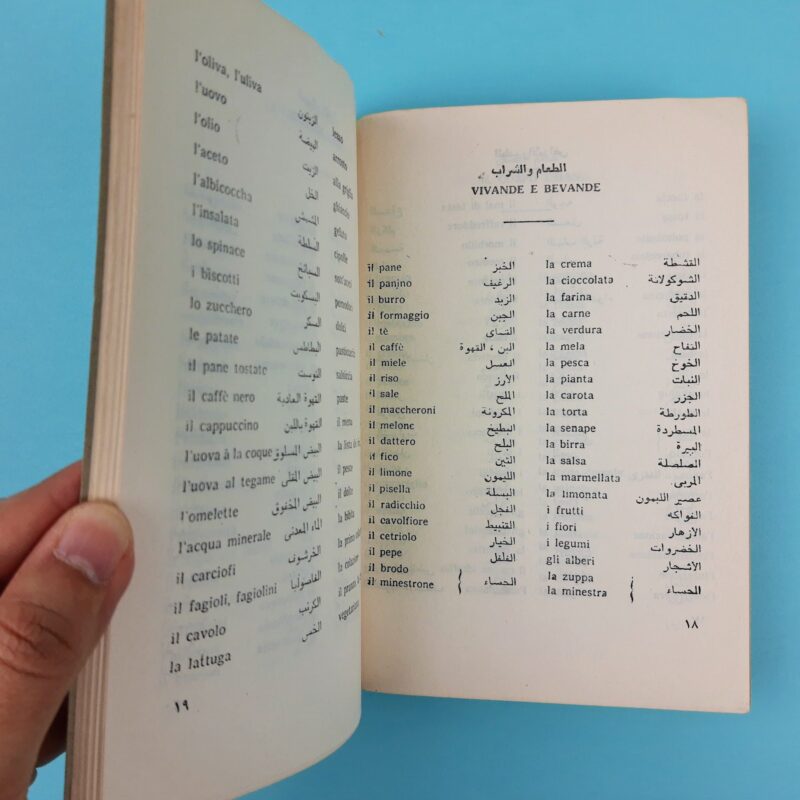 الطعام والشراب
VIVANDE E BEVANDE
il pane الخبز
il panino الرغيف
il burro الزبد
il formaggio الجبن
il tè الشاى
il caffè البن ، القهوة
il miele العسل
il riso الأرز
il sale الملح
il maccheroni المكرونة
il melone البطيخ
il dattero البلح
il fico التين
il limone الليمون
il pisella البسلة
il radicchio الفجل
il cavolfiore القنبيط
il cetriolo الخيار
il pepe الفلفل
il brodo
il minestrone } الحساء
la crema القشطة
la cioccolata الشوكولاتة
la farina الدقيق
la carne اللحم
la verdura الخضار
la mela التفاح
la pesca الخوخ
la pianta النبات
la carota الجزر
la torta الطورطة
la senape المسطردة
la birra البيرة
la salsa الصلصلة
la marmellata المربى
la limonata عصير الليمون
i frutti الفواكه
i fiori الأزهار
i legumi الخضروات
gli alberi الأشجار
la zuppa
la minestra } الحساء
١٨
l'oliva, l'uliva الزيتون
l'uovo البيضة
l'olio الزيت
l'aceto الخل
l'albicoccha المشمش
l'insalata السلطة
lo spinace السبانخ
i biscotti البسكويت
lo zucchero السكر
le patate البطاطس
il pane tostate التوست
il caffè nero القهوة العادية
il cappuccino القهوة باللبن
l'uova à la coque البيض المسلوق
l'uova al tegame البيض المقلى
l'omelette البيض المخفوق
l'acqua minerale الماء المعدنى
il carciofi الخرشوف
il fagioli, fagiolini الفاصوليا
il cavolo الكرنب
la lattuga الخس
١٩
lesso
arrosto
alla griglia
gelato
cipolle
dolci
paste
il menu
la lista
il pesce
il dolce
la prima
il pranzo